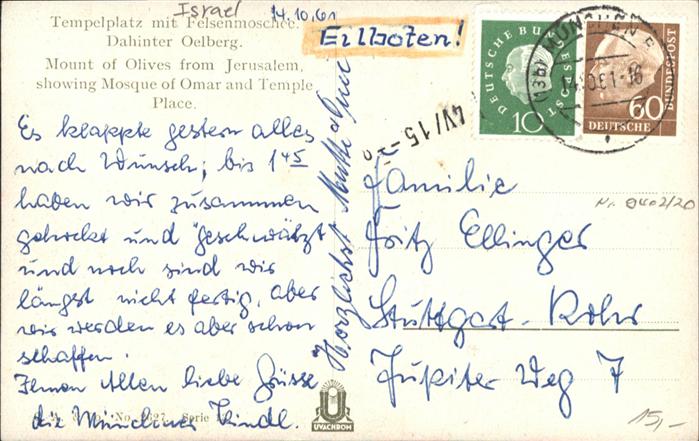 Israel 14.10.61
Tempelplatz mit Felsenmoschee.
Dahinter Oelberg.
Mount of Olives from Jerusalem,
showing Mosque of Omar and Temple
Place.
Eilboten!
DEUTSCHE BUNDESPOST
10
60
DEUTSCHE
BUNDESPOST
(13b) MÜNCHEN
Es klappte gestern alles
nach Wunsch; bis 1 45
haben wir zusammen
gehockt und geschwätzt
und noch sind wir
längst nicht fertig, aber
wir werden es aber schon
schaffen.
Ihnen Allen liebe Grüsse
die Münchner Kindl.
Herzlichst
Familie
Fritz Ellinger
Stuttgart-Rohr
Jupiter Weg 7
Nr. 9402/20
No.
Serie
UVACHROM
15,-